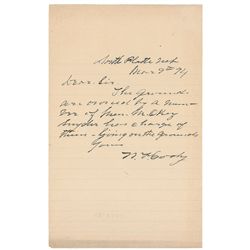 North Platte Neb
Mar 9th 91
Dear Sir
The ground
are owned by a num
ber of men. McKay
Snyder has charge of
them - Going on the grounds
Yours
W. F. Cody